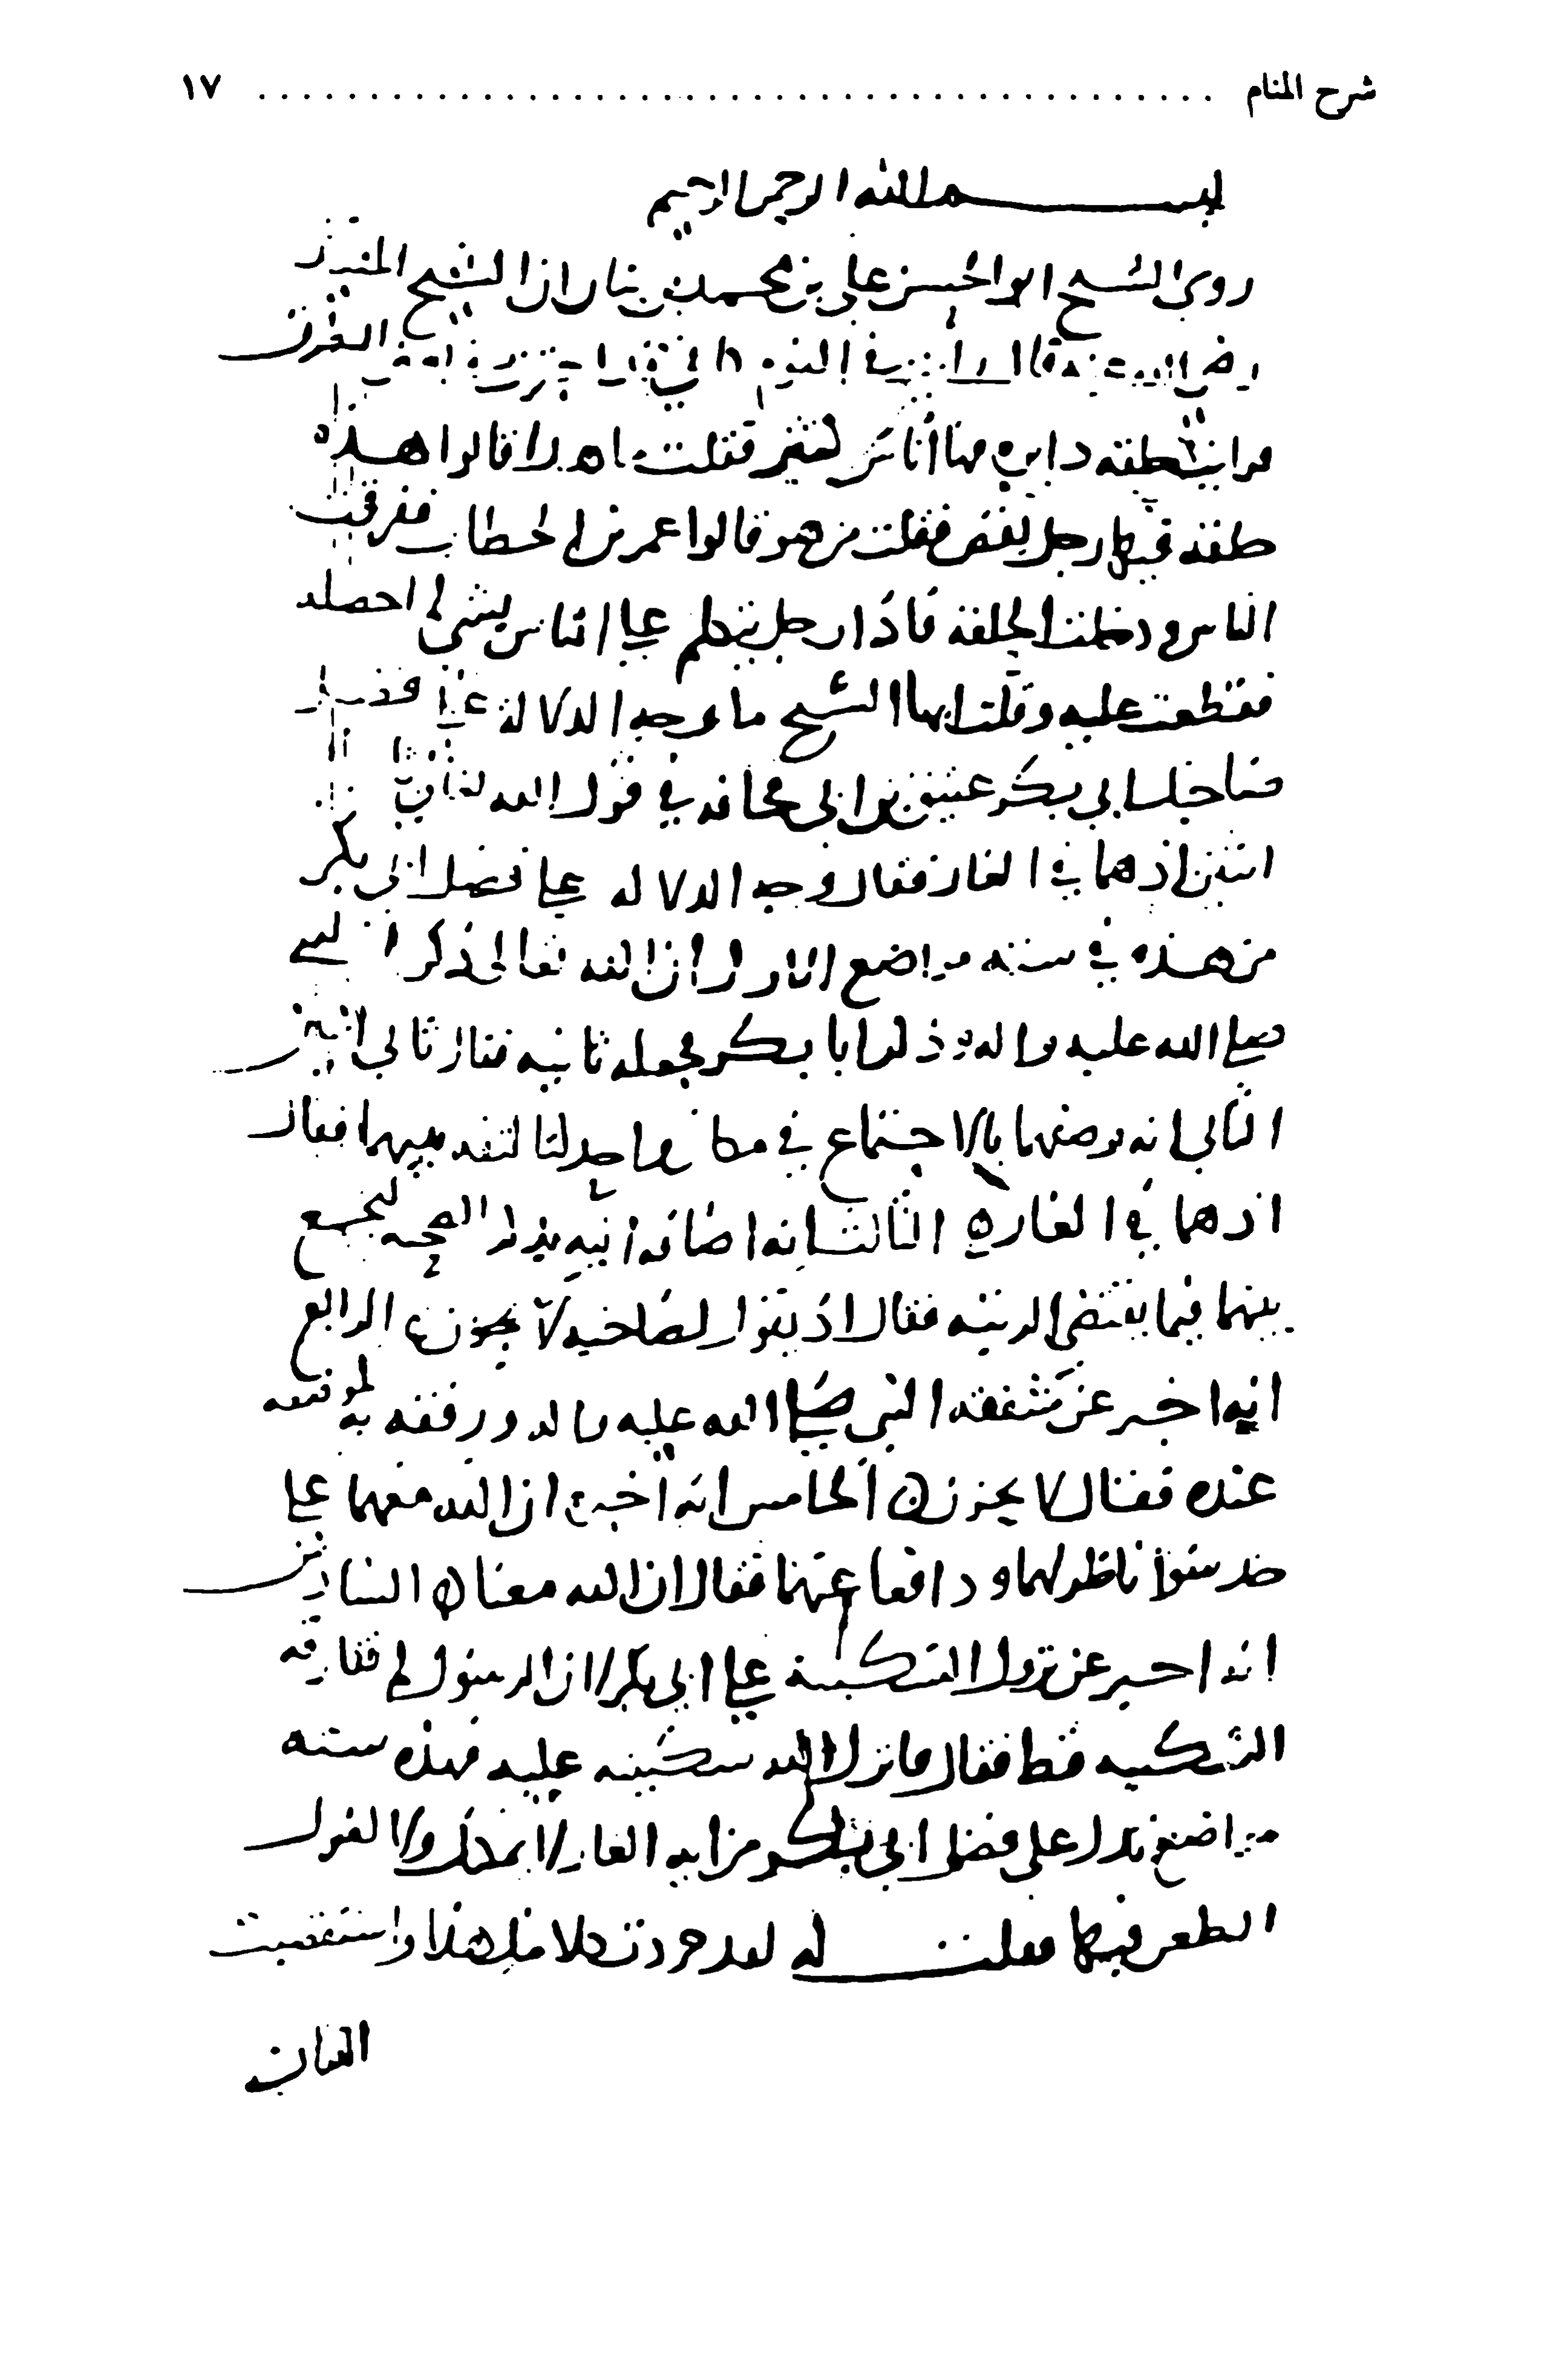 شرح المنام ........................................ ١٧
بسم الله الرحمن الرحيم
روى الشيخ ابو الحسن علي بن محمد بن بنان ان الشيخ المفيد
رضي الله عنه قال رأيت في النوم كاني قد اجتزت في بعض الطرق
فرايت حلقة دايره فيها أناس كثير فقلت ما هذا قالوا هذه
حلقة فيها رجل يقص فقلت من هو قالوا عمر بن الخطاب ففرقت
الناس ودخلت الحلقة فاذا رجل يتكلم على الناس بشي لم احصله
فقطعت عليه وقلت ايها الشيخ ما وجه الدلالة على فضل
صاحبك ابي بكر عتيق بن ابي قحافه في قول الله تعالى ثاني
اثنين اذ هما في الغار فقال وجه الدلاله على فضل ابي بكر
من هذه في سته مواضع الاول ان الله تعالى ذكر النبي
صلى الله عليه واله وذكر ابا بكر فجعله ثانيه فقال ثاني اثنين
الثاني انه وصفهما بالاجتماع في مكان واحد لتا لتفه بينهما فقال
اذ هما في الغاره الثالث انه اضافه اليه بذكر الصحبه ليجمع
بينهما فيما يقتضي الرتبه فقال اذ يقول لصاحبه لا تحزن الرابع
انه اخبر عن شفقه النبي صلى الله عليه واله ورفقه به لموقعه
عنده فقال لا تحزن ه الخامس انه اخبره ان الله معهما على
حد سوا ناظر لهما ودافعا عنهما فقال ان الله معنا ه السادس
انه اخبر عن نزول السكينة على ابي بكر لان الرسول لم تفارقه
السكينه قط فقال فانزل الله سكينته عليه فهذه سته
مواضع تدل على فضل ابي بكر من ايه الغار لا يمكنك ولا لغيرك
الطعن فيها فقلت له لقد حررت كلامك هذا واستقصيت
البيان